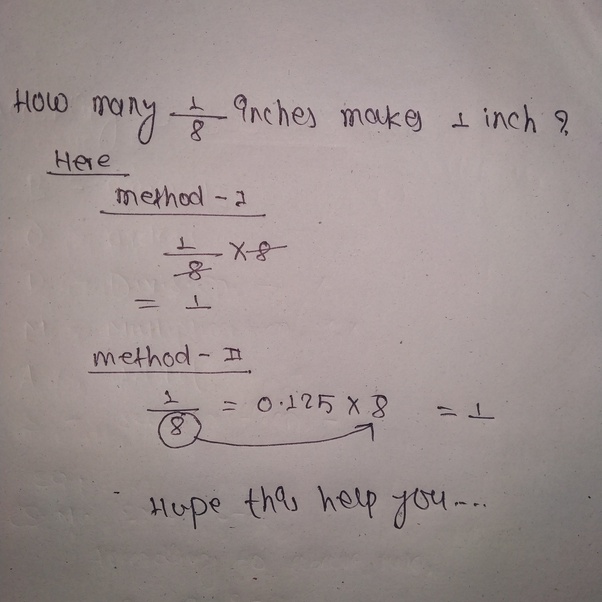 How many 1/8 inches makes 1 inch ?
Here
method - I
1/8 × 8
= 1
method - II
1/8 = 0.125 × 8 = 1
Hope this help you....